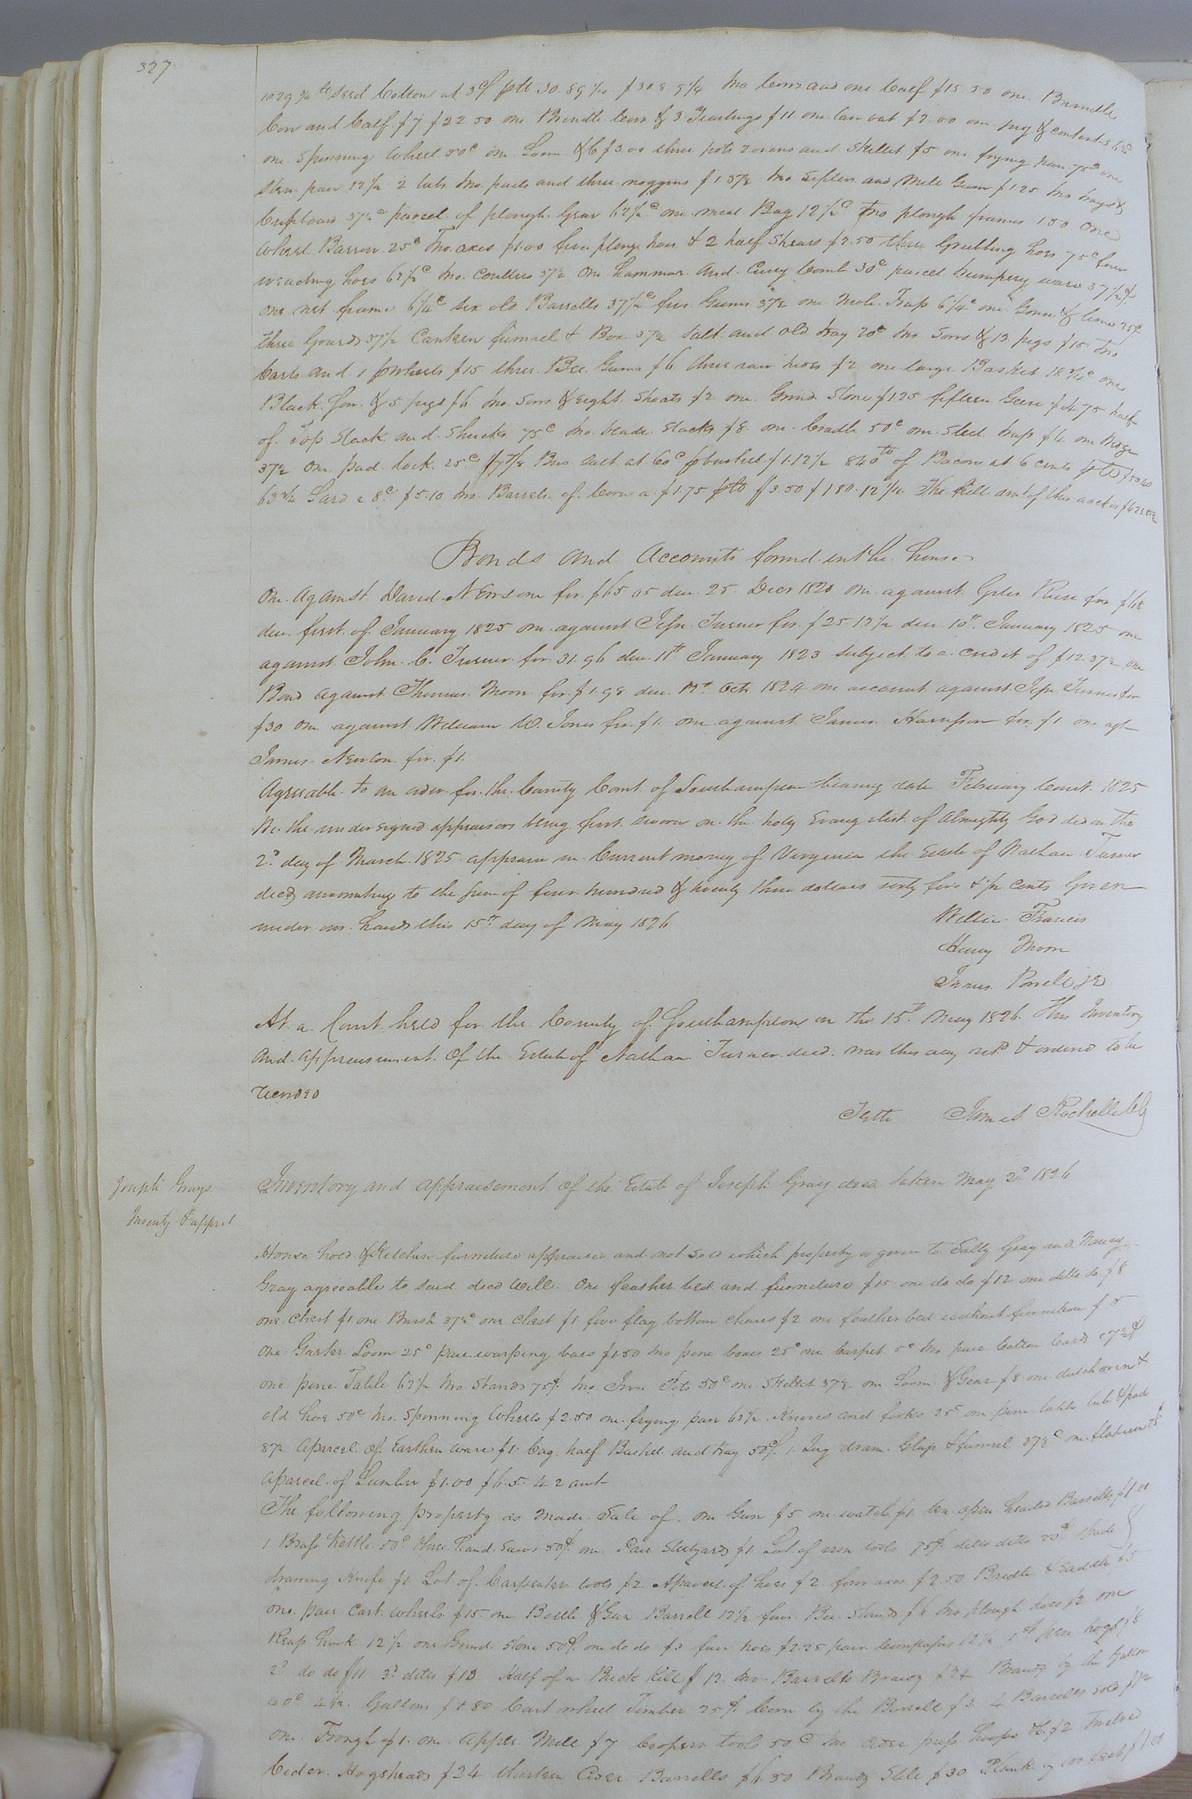 327
1029 ¾ lb Seed Cotton at 3 pr 30.89 two Cows and one Calf $15.50 one Brindle
Cow and Calf $7 $22.50 one Brindle Cow & 3 Yearlings $11 one $2.00 one Jug & contents
one Spinning Wheel 50c one Loom & $3.00 three pots 2 ovens and Skillet $5 one frying pan 75c one
Stew pan 12½ 2 tubs two pails and three noggins $1.37½ two Sifters and Meal Gum $1.25 two
Cupboard 37½c parcel of plough Gear 62½c one meal Bag 12½c two plough frames 1.50 One
Wheel Barrow 25c Two axes $1.00 five plough hoes & 2 half Shears $2.50 three Grubbing hoes 75c four
weeding hoes 62½c two Coulters 37½ One hammer and Curry Comb 30c parcel trumpery ware 37½
one net frame 6¼c six old Barrells 37½c five Gums 37½ one Mole Trap 6¼c one
three Gourds 37½ Canteen funnel & Box 37½ Salt and Old tray 20c two Sows & 13 pigs $15 two
Carts and 1 pr Wheels $15 three Bee Gums $6 three raw hides $2 one large Basket 18¾c one
Black Sow & 5 pigs $6 two Sows & eight Shoats $2 one Grind Stone $1.25 fifteen Geese $4.75 half
of Top Stack and Shucks 75c two blade Stacks $8 one Cradle 50c one Steel trap $4 one
37½ one pad lock 25c Bus Salt at 60c pr bushel $1.12½ 840 lb of Bacon at 6 cents
63¾ Lard a 8c $5.10 two Barrels of Corn a $1.75 $3.50 $180.12 The
Bonds and Accounts found in the house
One against David Newsome for $65.05 due 25 Decr 1820 one against Giles Reese for
due first of January 1825 one against Jesse Turner for $25.12½ due 10th January 1825 one
against John C. Turner for 31.96 due 11th January 1823 subject to a credit of $12.37½ one
Bond against Thomas Moon for $1.98 due Octr 1824 one account against Jesse Turner for
$30 one against William W. Jones for $1 one against James Harrison for $1 one agt
James Newton for $1.
Agreeable to an order for the County Court of Southampton bearing date February Court 1825
We the undersigned appraisers being first sworn on the holy Evangelist of Almighty God did on the
2d day of March 1825 appraise in Current money of Virginia the Estate of Nathan Turner
decd amounting to the sum of four hundred & twenty three dollars sixty five & ½ cents Given
under our hands this 15th day of May 1826
Willie Francis
Henry Moon
James Powell Jr
At a Court held for the County of Southampton on the 15th May 1826 This Inventory
and appraisement of the Estate of Nathan Turner decd. was this day retd & ordered to be
recorded
Teste James Rochelle Clk
Joseph Grays
Inventy & apprt
Inventory and appraisement of the Estate of Joseph Gray decd taken May 2d 1826
House hold & Kitchen furniture appraised and not Sold which property is given to Sally Gray and Nancy
Gray agreeable to said decd Will. One feather bed and furniture $15 one do do $12 one ditto do $8
one chest $1 one Brush 37½c one Chest $1 five flag bottom chairs $2 one feather bed without furniture $5
one Garter Loom 25c pair warping bars $1.50 two pine boxes 25c one Carpet 5c two pair Cotton Cards
one pine Table 62½ two Stands 75c two Iron Pots 50c one Skillet 37½ one Loom & Gear $8 one dutch oven &
old hoe 50c two Spinning Wheels $2.50 one frying pan 62½ Knives and forks 25c one pine table tub & pail
87½ Aparcel of Earthen ware $1 bag half Bushel and tray 50c 1 Jug dram Glass & funnel 37½c one
aparcel of Lumber $1.00 $65.42 amt
The following property is Made Sale of. One Gun $5 one watch $1 ten open headed Barrells
1 Brass Kettle 50c three hand Saws 50c one Pair Steelyards $1 Lot of iron tools 75c ditto ditto 20c Spade
drawing Knife $1 Lot of Carpenters tools $2 Aparcel of hoes $2 four axes $2.50 Bridle & Saddle $5
one pair Cart wheels $15 one Bottle & Gun Barrell 12½ four Bee Stands $4 two plough hoes $2 one
Reap hook 12½ one Grind Stone 50c one do do $3 four hoes $2.25 pair Compasses 12½ 1st pen hogs $8
2d do do $11 3d ditto $13 Half of a Brick Kiln $12 two Barrells Brandy $34 Brandy by the Gallon
40c 4½ Gallons $1.80 Cart wheel Timber 25c Corn by the Barrell $3 4 Barrells sold $12
one Trough $1 one Apple Mill $7 Coopers tools 50c two Cider press hoops &c $2 Twelve
Cider Hogsheads $24 thirteen Cider Barrells $6.50 Brandy Still $30 Plank by 100